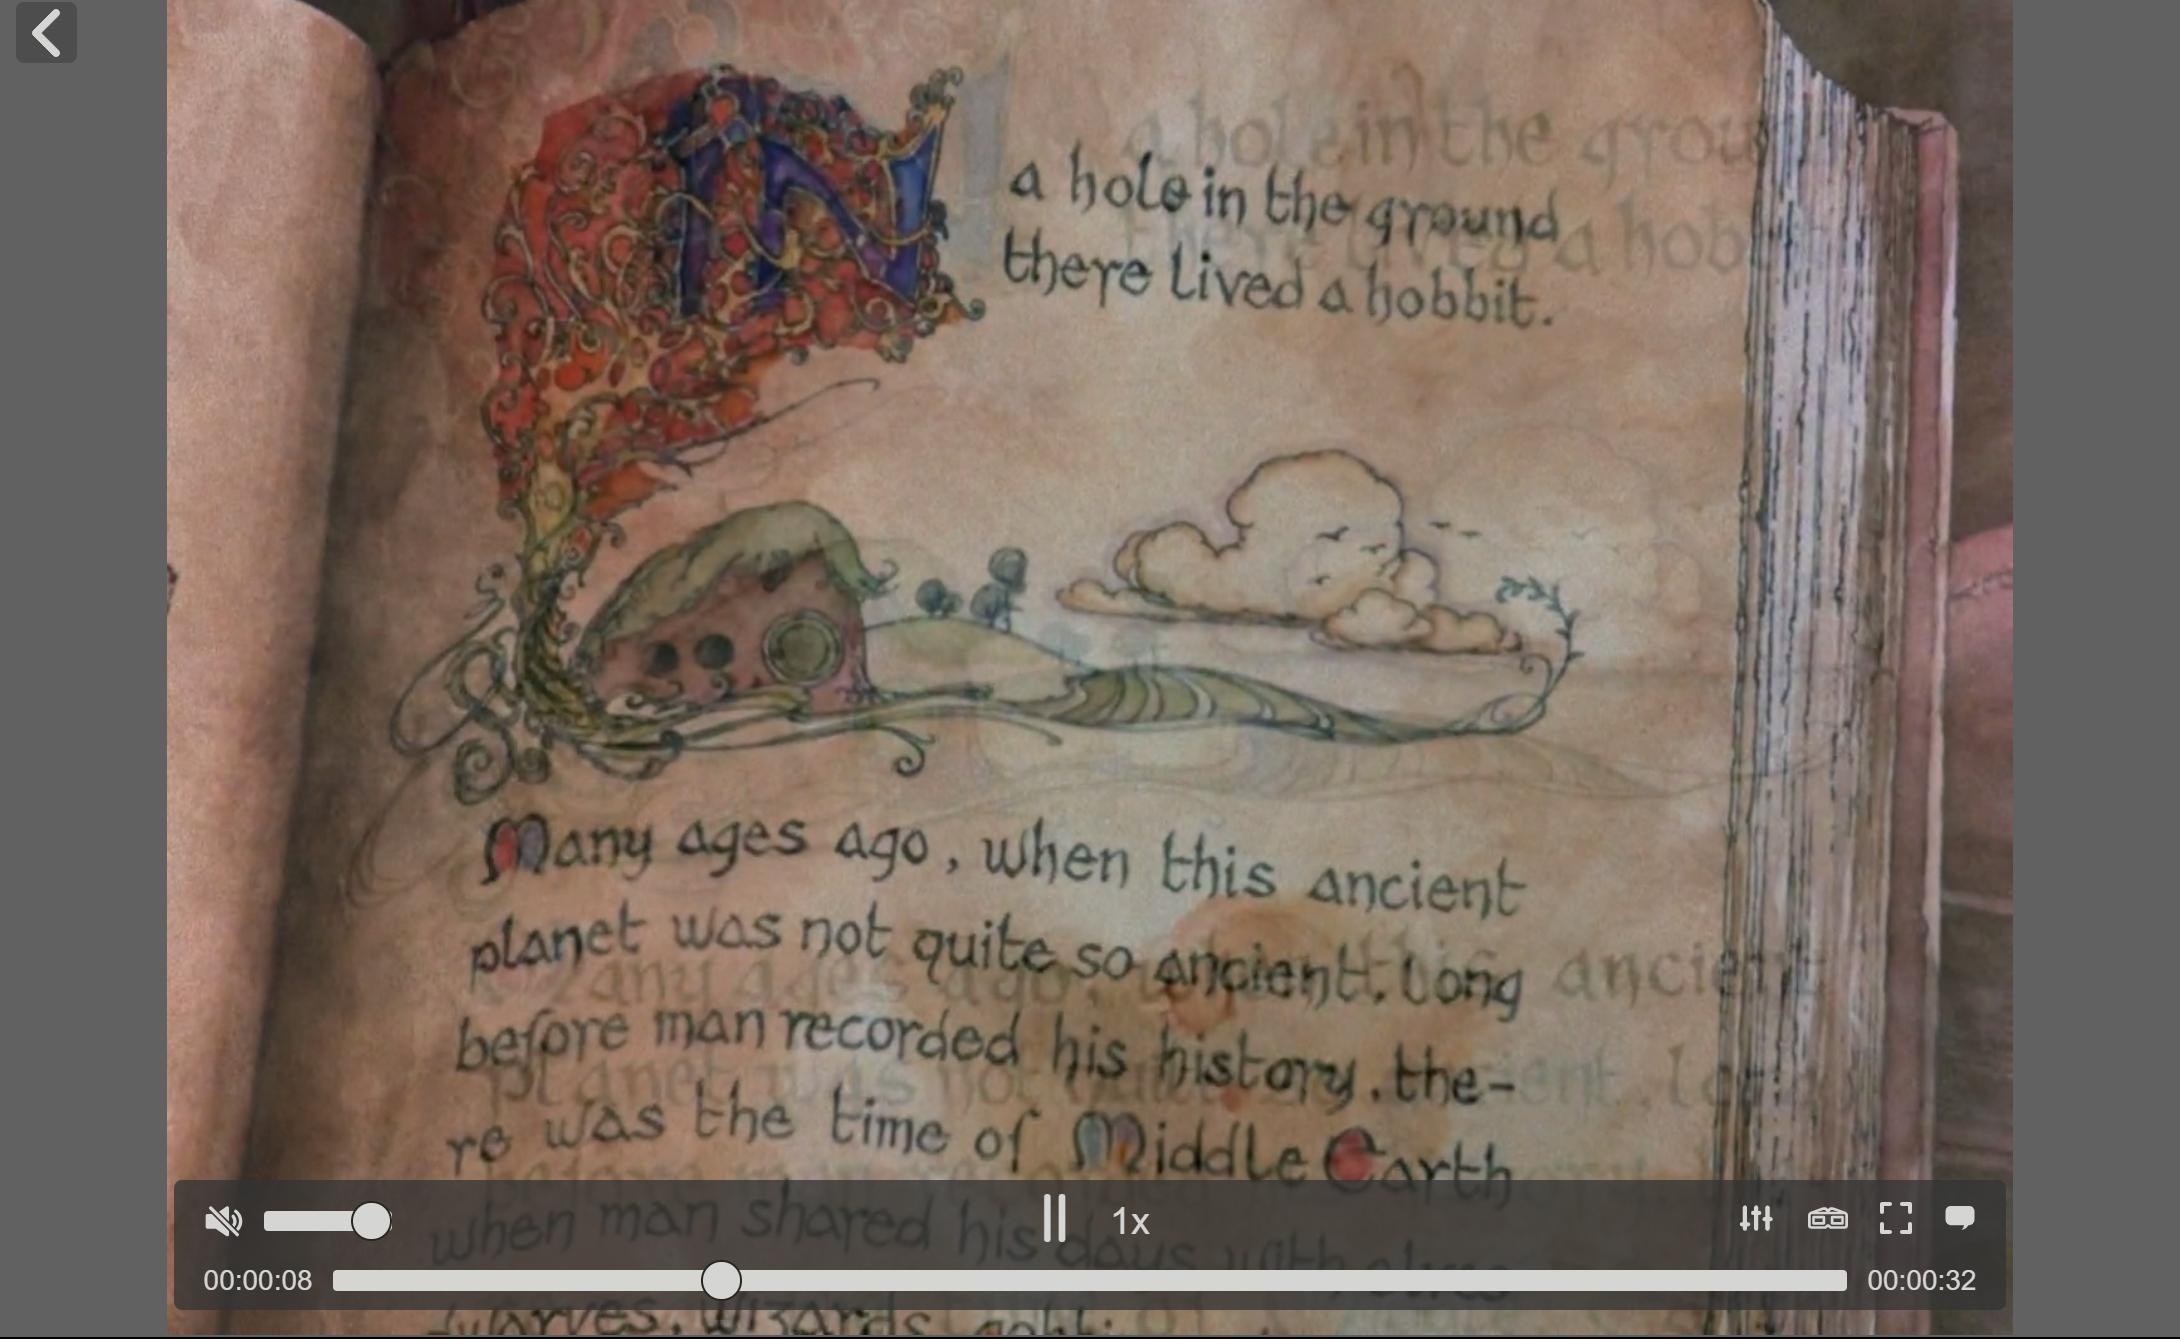 IN a hole in the ground
there lived a hobbit.
Many ages ago, when this ancient
planet was not quite so ancient. Long
before man recorded his history, the-
re was the time of Middle Earth
when man shared his days with elves
dwarves, wizards,
1x
00:00:08
00:00:32